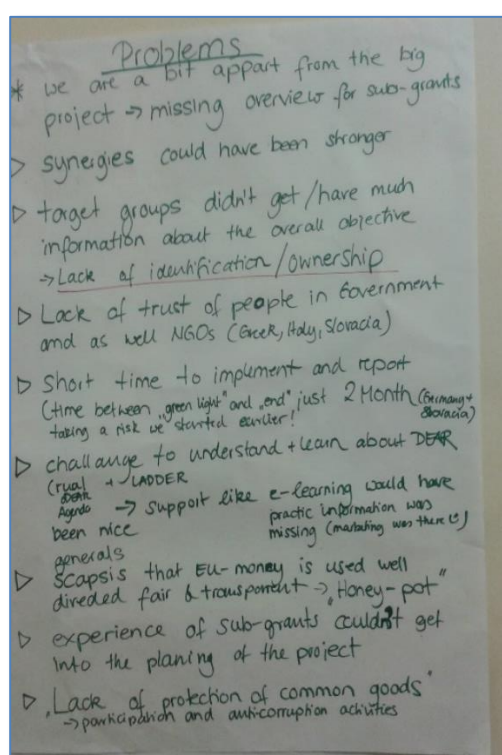 Problems
* we are a bit appart from the big
project → missing overview for sub-grants
▷ synergies could have been stronger
▷ target groups didn't get/have much
information about the overall objective
→ Lack of identification/ownership
▷ Lack of trust of people in Government
and as well NGOs (Greek, Italy, Slovacia)
▷ Short time to implement and report
(time between „green light" and „end" just 2 Month (Germany +
taking a risk we started earlier! Slovacia)
▷ challange to understand + learn about DEAR
(rual + LADDER
Agenda → support like e-learning would have
been nice practic information was
generals missing (marketing was there ☺)
▷ Scapsis that EU-money is used well
diveded fair & transparent → „Honey-pot"
▷ experience of sub-grants couldn't get
into the planing of the project
▷ „Lack of protection of common goods"
→ participation and anti-corruption activities